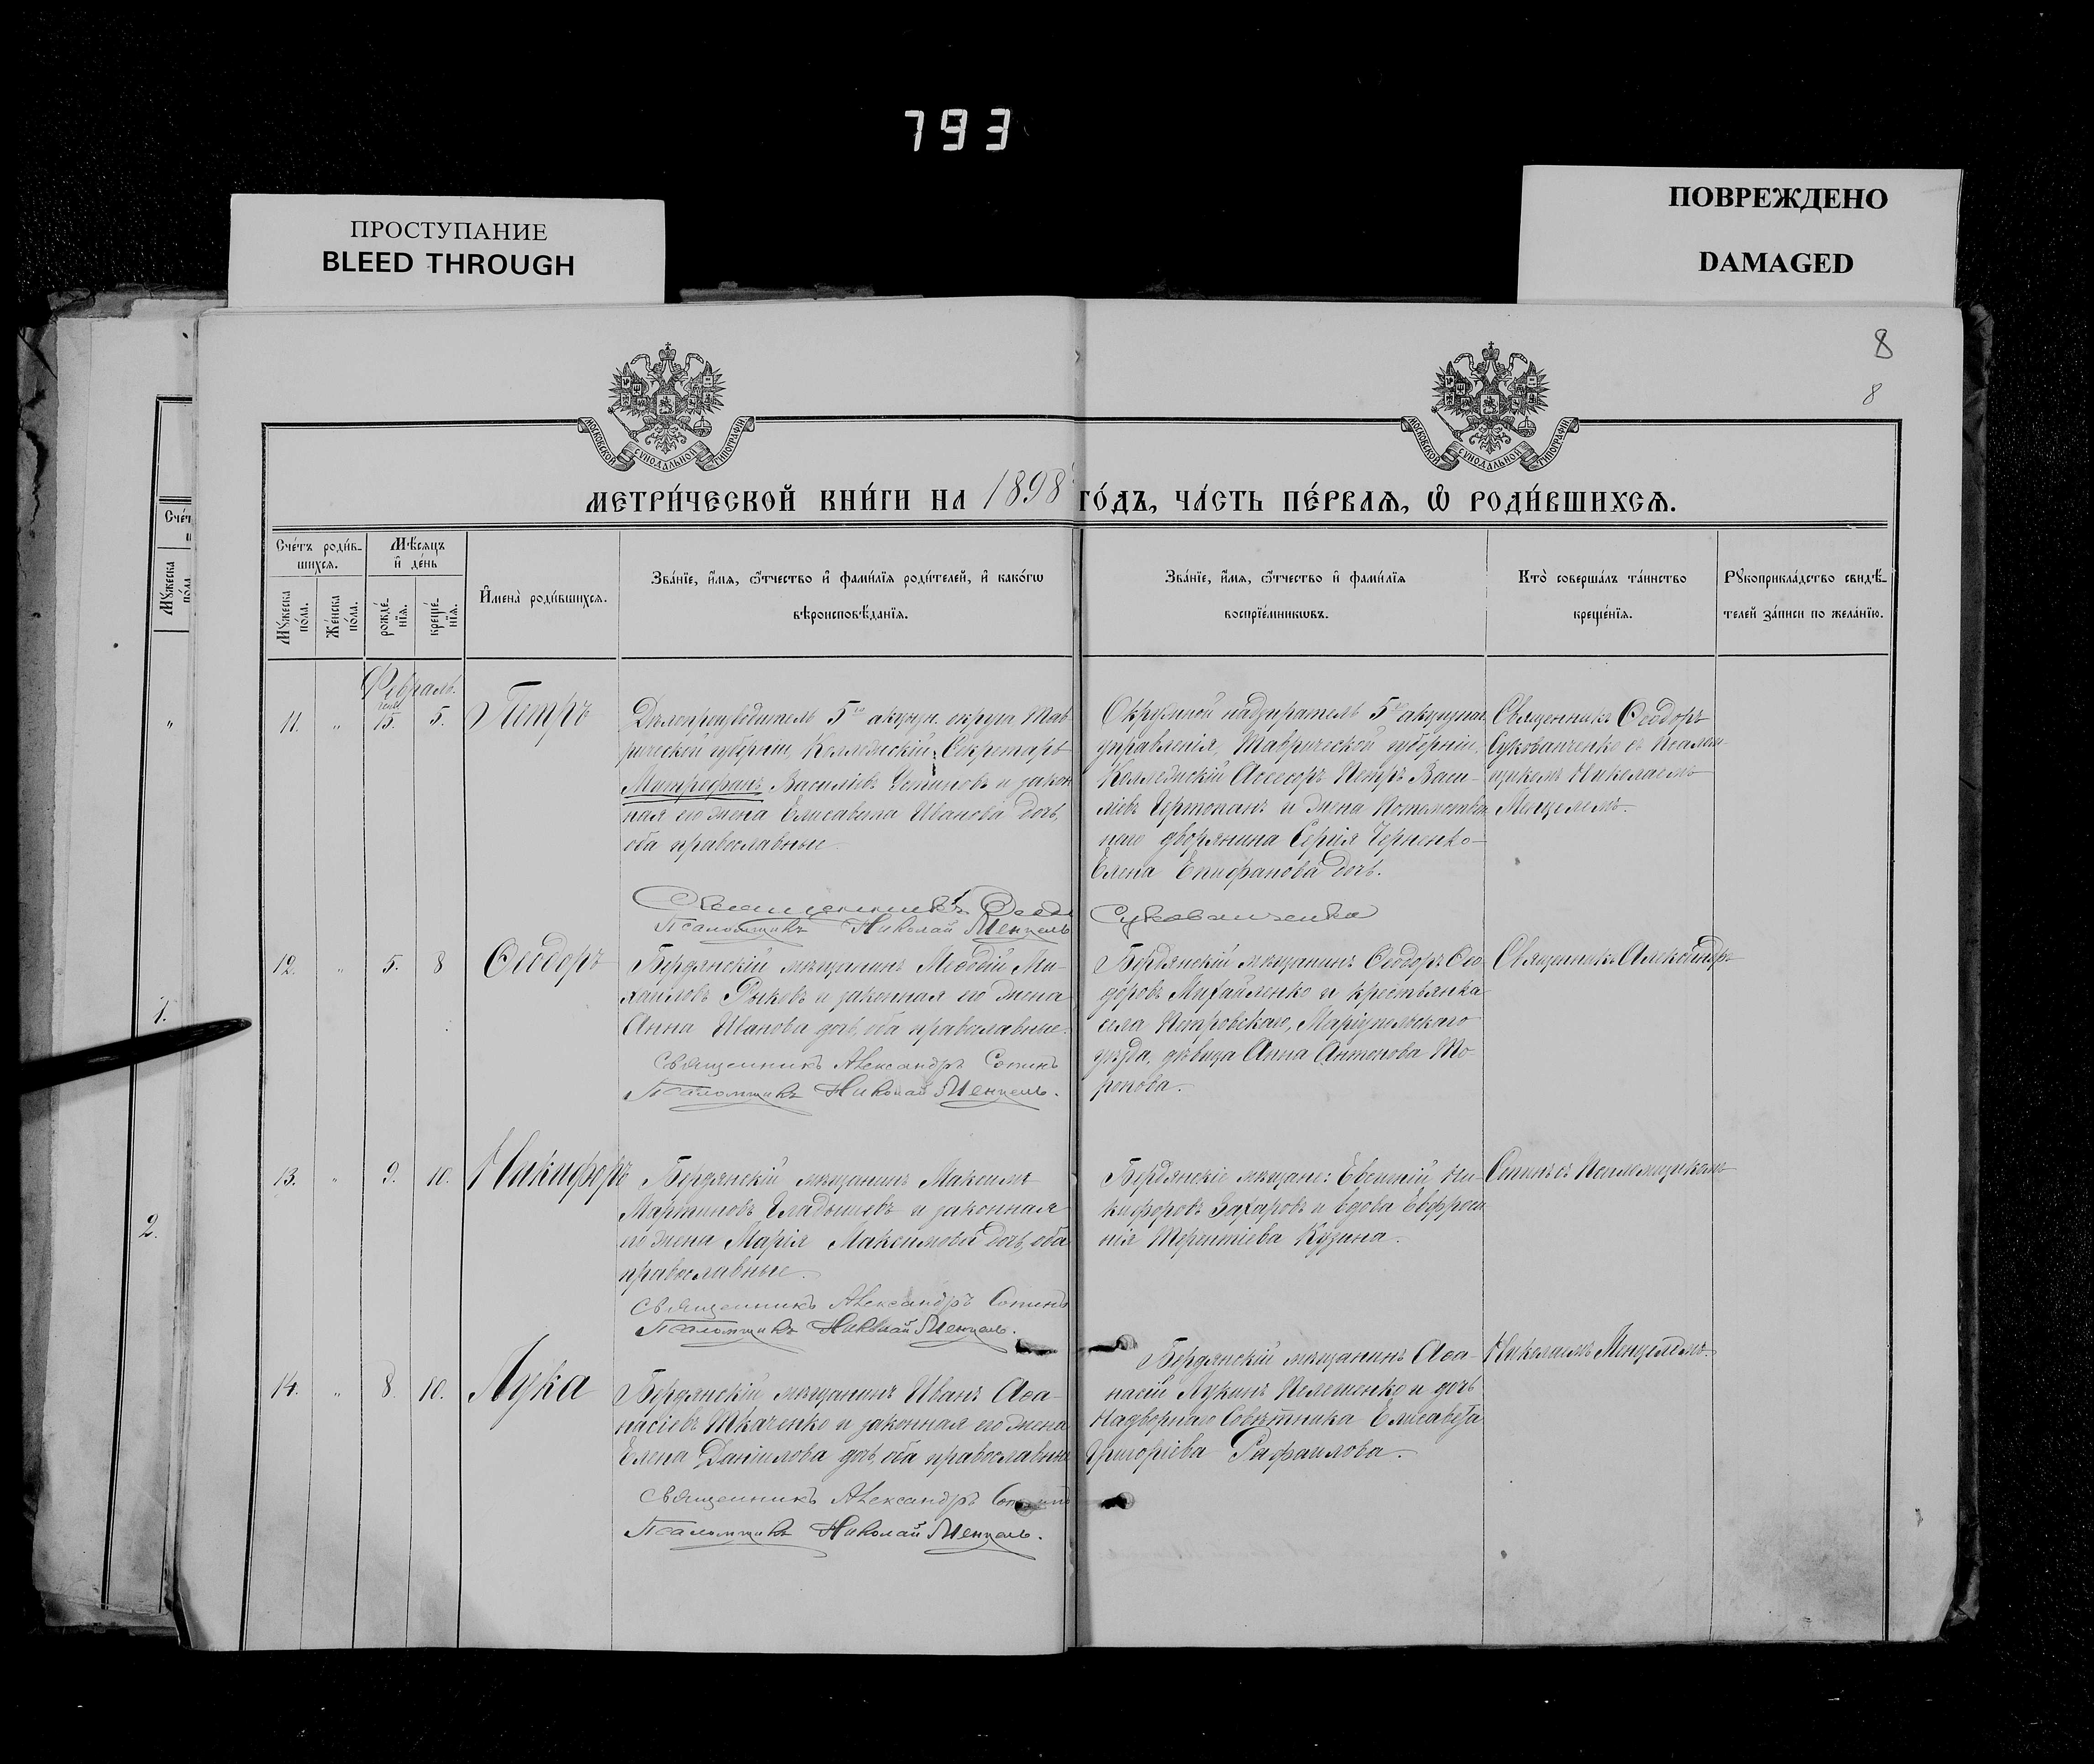 793
ПРОСТУПАНИЕ
BLEED THROUGH
ПОВРЕЖДЕНО
DAMAGED
8
8
МОСКОВСКОЙ СѴНОДАЛЬНОЙ ТИПОГРАФІИ
МОСКОВСКОЙ СѴНОДАЛЬНОЙ ТИПОГРАФІИ
МЕТРИ́ЧЕСКОЙ КНИ́ГИ НА 1898 ГО́ДЪ, ЧА́СТЬ ПЕ́РВАѦ, Ѡ҆ РОДИ́ВШИХСѦ.
Сче́тъ роди́в-
шихся.
Мѣ́сяцъ
и҆ де́нь
Мꙋ́жеска по́ла.
Же́нска по́ла.
рожде́-нїя.
креще́-нїя.
И҆мена̀ роди́вшихся.
Зва́нїе, и҆́мя, ѻ҆́тчество и҆ фами́лїя роди́телей, и҆ како́гѡ
вѣроисповѣ́данїя.
Зва́нїе, и҆́мя, ѻ҆́тчество и҆ фами́лїя
воспрїе́мникѡвъ.
Кто̀ соверша́лъ та́инство
креще́нїя.
Рꙋкоприкла́дство свидѣ́-
телей за́писи по жела́нїю.
Февраль.
11. „ 15. 5. Петръ
Дѣлопроизводитель 5го акцизн. округа Тав-
рической губерніи, Коллежскій Секретарь
Митрофанъ Васильевъ Устиновъ и закон
ная его жена Елисавета Иванова дочь,
оба православные.
Окружной надзиратель 5го акцизнаго
управленія, Таврической губерніи,
Коллежскій Ассесоръ Петръ Васи-
льевъ Чертопанъ и жена Потомствен
наго дворянина Сергія Черненко
Елена Епифанова дочь.
Священникъ Ѳеодоръ
Сукованченко съ Псалом-
щикомъ Николаемъ
Менцелемъ.
Священникъ Ѳеод Сукованченко
Псаломщикъ Николай Менцель
12. „ 5. 8 Ѳеодоръ
Бердянскій мѣщанинъ Меѳодій Ми-
хаиловъ Рыковъ и законная его жена
Анна Иванова дочь, оба православные.
Священникъ Александръ Сопинъ
Псаломщикъ Николай Менцель.
Бердянскій мѣщанинъ Ѳеодоръ Ѳео
доровъ Михайленко и крестьянка
села Петровскаго, Маріупольскаго
уѣзда, дѣвица Анна Антонова То-
ропова.
Священникъ Александръ
13. „ 9. 10. Никифоръ
Бердянскій мѣщанинъ Максимъ
Мартиновъ Гладышевъ и законная
его жена Марія Максимова дочь, оба
православные.
Священникъ Александръ Сопинъ
Псаломщикъ Николай Менцель.
Бердянскіе мѣщане: Евсигній Ни-
кифоровъ Захаровъ и вдова Евфроси
нія Терентіева Кузина.
Сопинъ съ Псаломщикомъ
14. „ 8. 10. Лука
Бердянскій мѣщанинъ Иванъ Аѳа-
насіевъ Ткаченко и законная его жена
Елена Даніилова дочь, оба православные
Священникъ Александръ Сопинъ
Псаломщикъ Николай Менцель.
Бердянскій мѣщанинъ Аѳа-
насій Лукинъ Пелешенко и дочь
Надворнаго Совѣтника Елисавета
Григоріева Рафаилова.
Николаемъ Менцелемъ.
Сче́т
Мꙋ́жеска
по́ла
„
1.
2.